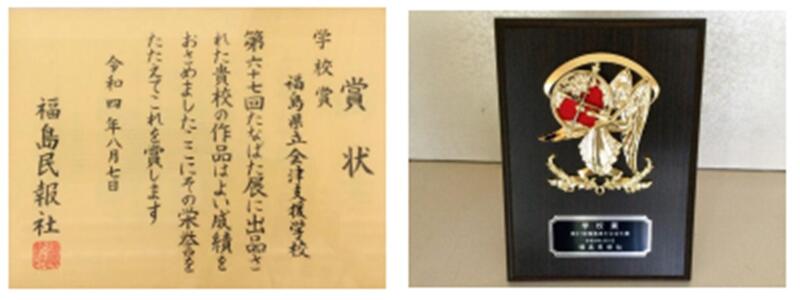 賞状
学校賞
福島県立会津支援学校
第六十七回たなばた展に出品さ
れた貴校の作品はよい成績を
おさめましたここにその栄誉を
たたえてこれを賞します
令和四年八月七日
福島民報社
学校賞
福島民報社